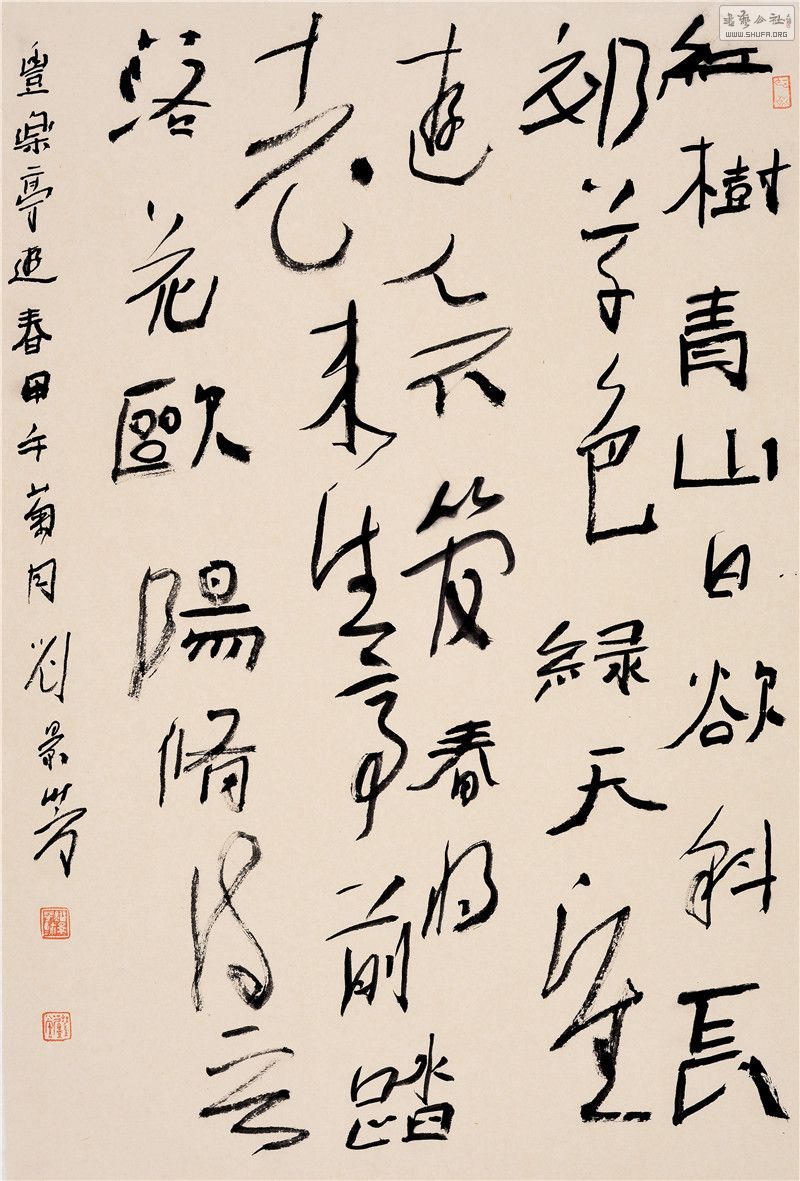 紅樹青山日欲斜長
郊草色緑无涯
遊人不管春将
老来往亭前踏
落花歐陽脩詩一首
豐樂亭遊春甲午菊月劉景芳
书艺公社
WWW.SHUFA.ORG